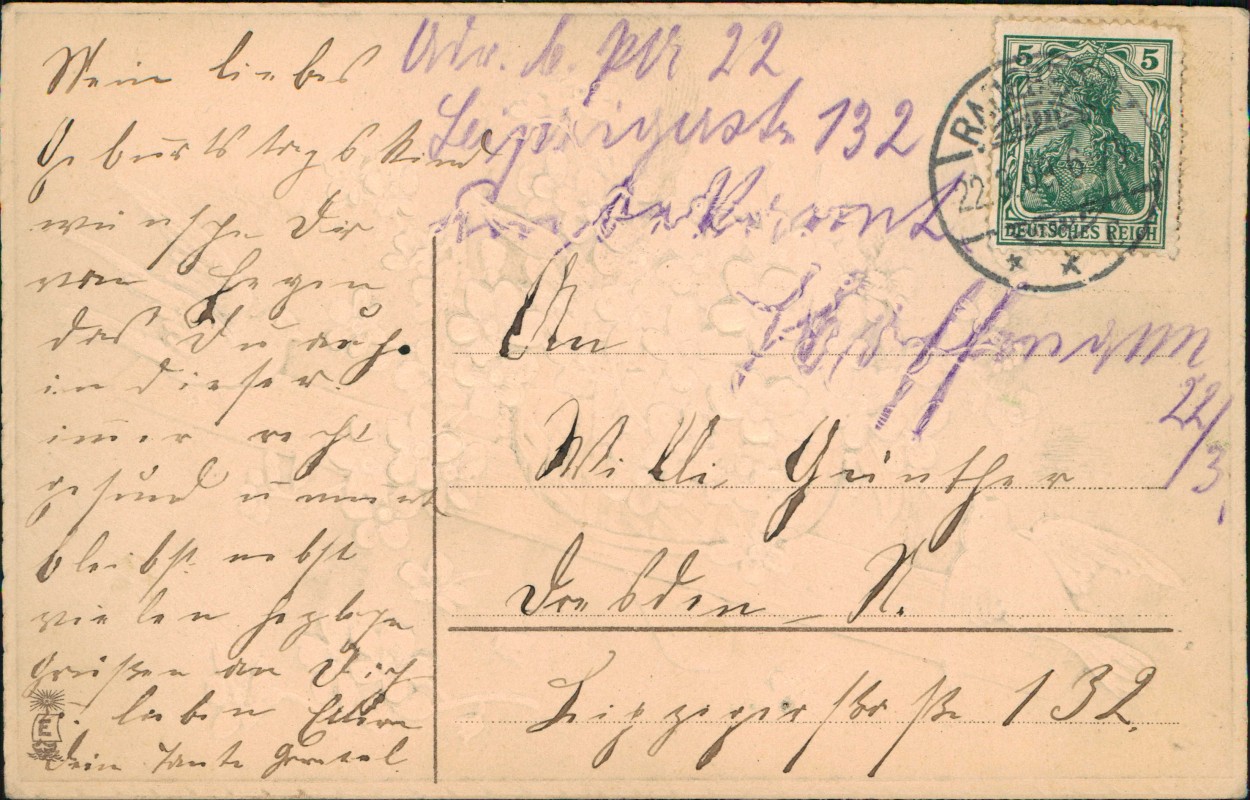 Mein liebes
Geburtstagskind
wünsche Dir
von Herzen
das Du auch
in dieser
immer recht
gesund u munter
bleibst nebst
vielen herzlichen
Grüßen an Dich
u. lieben Eltern
Dein Tante Gretel
Adr. b. 22
Leipzigerstr 132
unbekannt
Hoffmann
22/3
5 5
DEUTSCHES REICH
RA
22.
An
Willi Günther
Dresden - N.
Leipzigerstraße 132.
E